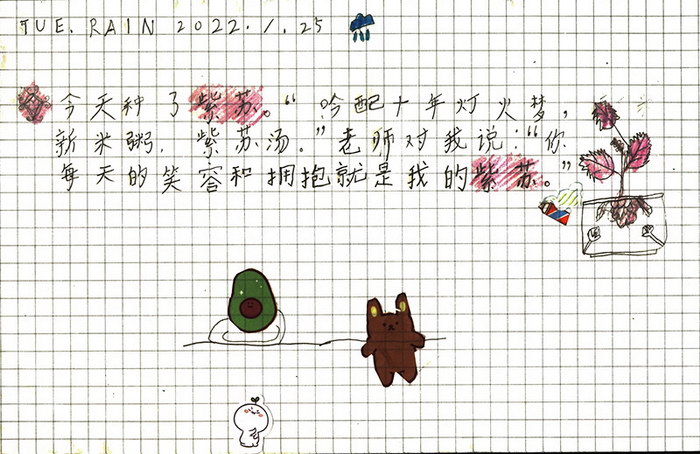 TUE. RAIN 2022.1.25
今天种了紫苏。“吟配十年灯火梦，
新米粥，紫苏汤。”老师对我说：“你
每天的笑容和拥抱就是我的紫苏。”